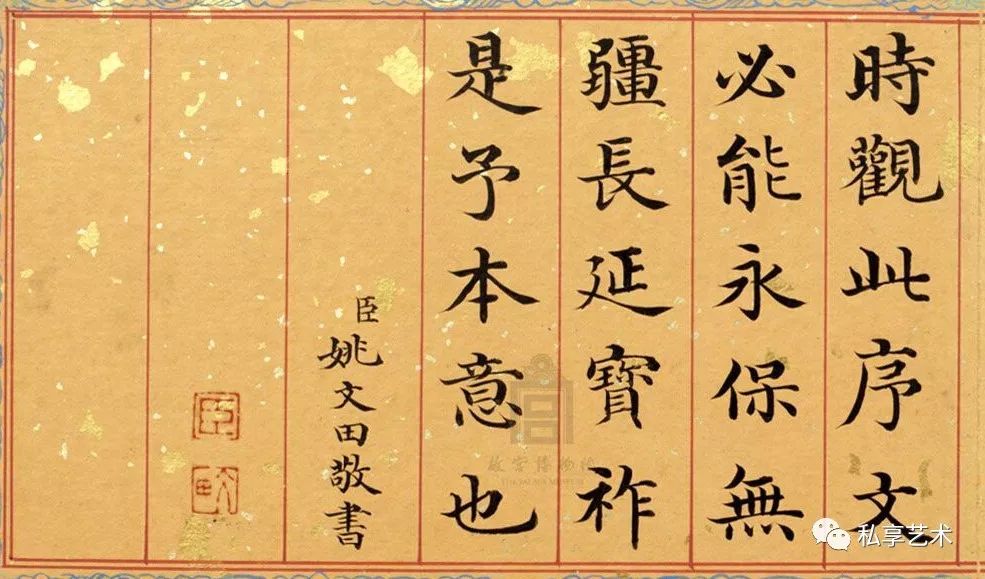 時觀此序文
必能永保無
疆長延寶祚
是予本意也
臣姚文田敬書
臣
故宫博物院
THE PALACE MUSEUM
私享艺术